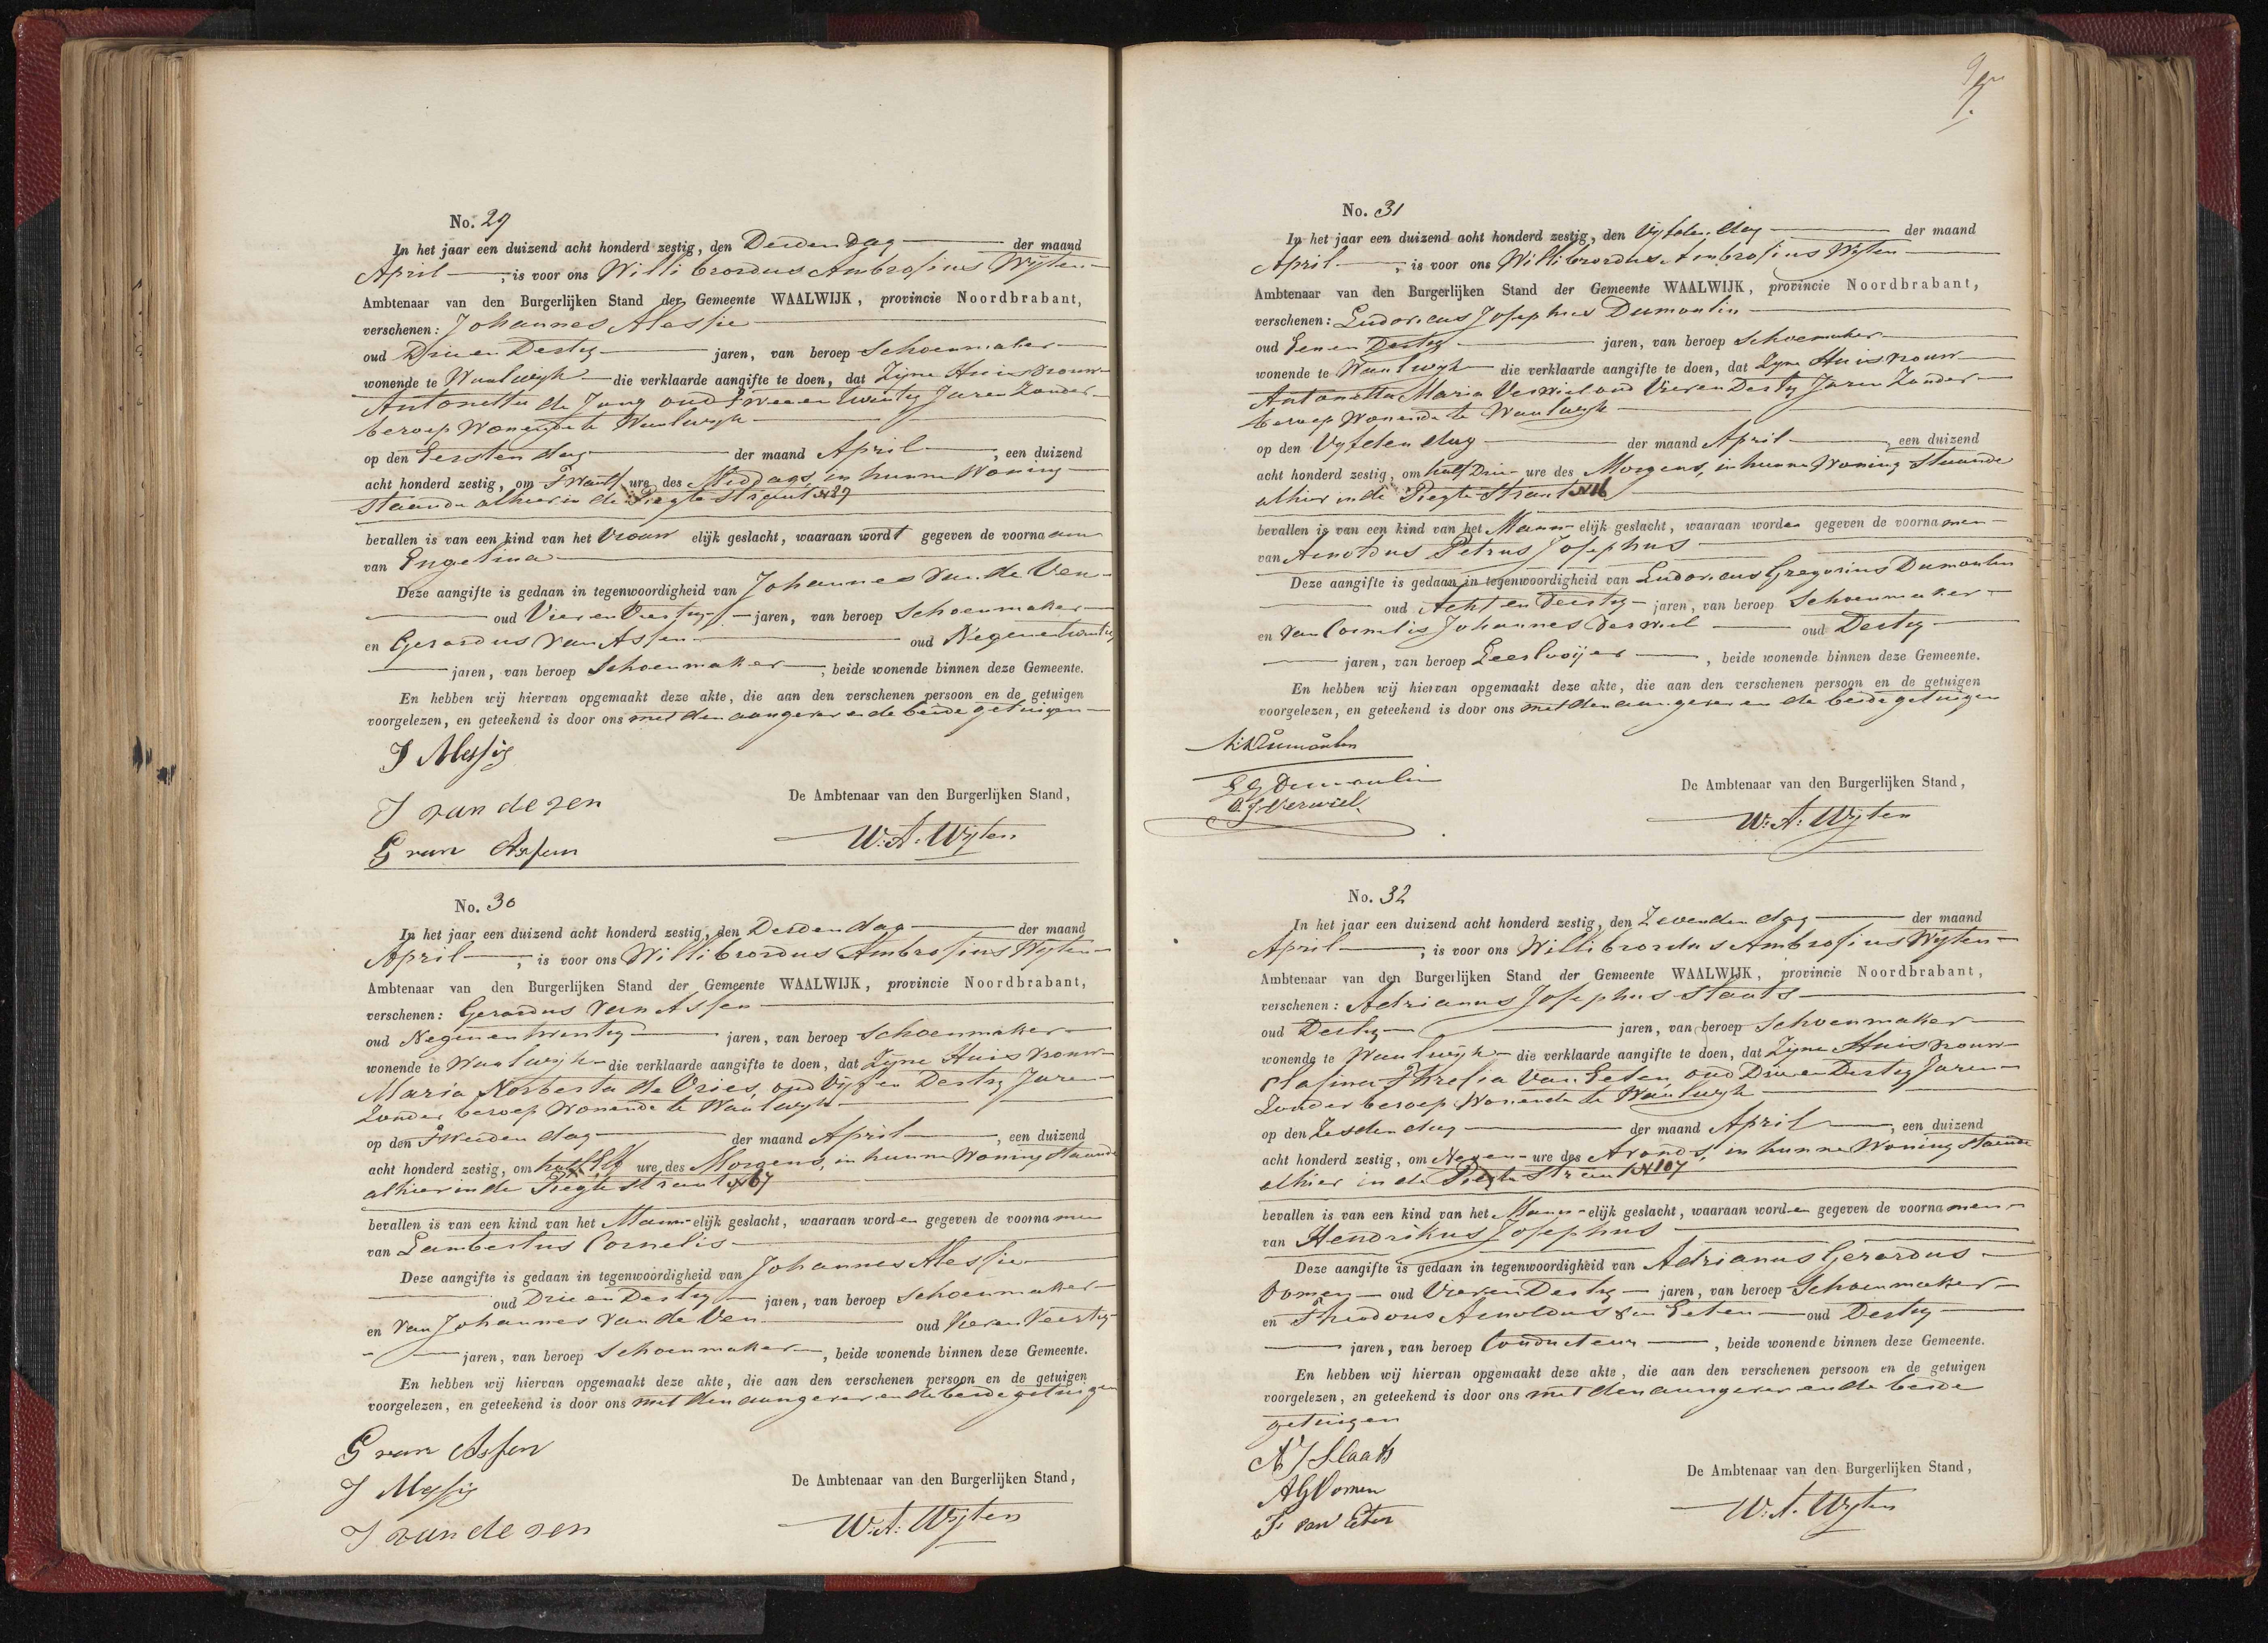 No. 29
In het jaar een duizend acht honderd zestig, den Derden dag der maand
April, is voor ons Willibrordus Ambrosius Wijten
Ambtenaar van den Burgerlijken Stand der Gemeente WAALWIJK, provincie Noordbrabant,
verschenen: Johannes Alessie
oud Drie en Dertig jaren, van beroep Schoenmaker
wonende te Waalwijk die verklaarde aangifte te doen, dat Zijne Huisvrouw
Antonetta de Jong oud Twee en twintig Jaren Zonder
beroep Wonende te Waalwijk
op den Eersten dag der maand April, een duizend
acht honderd zestig, om Twaalf ure des Middags, in hunne Woning
staande alhier in de Pregte Straat N 29
bevallen is van een kind van het Vrouw elijk geslacht, waaraan wordt gegeven de voornaam
van Engelina
Deze aangifte is gedaan in tegenwoordigheid van Johannes Van de Ven
oud Vier en Veertig jaren, van beroep Schoenmaker
en Gerardus Van Assen oud Negenentwintig
jaren, van beroep Schoenmaker, beide wonende binnen deze Gemeente.
En hebben wij hiervan opgemaakt deze akte, die aan den verschenen persoon en de getuigen
voorgelezen, en geteekend is door ons met den aangever en de beide getuigen
J Alessie
J van de ven
De Ambtenaar van den Burgerlijken Stand,
G van Assen
W: A: Wijten
No. 30
In het jaar een duizend acht honderd zestig, den Derden dag der maand
April, is voor ons Willibrordus Ambrosius Wijten
Ambtenaar van den Burgerlijken Stand der Gemeente WAALWIJK, provincie Noordbrabant,
verschenen: Gerardus Van Assen
oud Negenentwintig jaren, van beroep Schoenmaker
wonende te Waalwijk die verklaarde aangifte te doen, dat Zijne Huisvrouw
Maria Norberta de Vries, oud Vijf en Dertig Jaren
Zonder beroep Wonende te Waalwijk
op den Tweeden dag der maand April, een duizend
acht honderd zestig, om half Elf ure des Morgens, in hunne Woning staande
alhier in de Pregte straat N 67
bevallen is van een kind van het Mann elijk geslacht, waaraan worden gegeven de voornamen
van Lambertus Cornelis
Deze aangifte is gedaan in tegenwoordigheid van Johannes Alessie
oud Drie en Dertig jaren, van beroep Schoenmaker
en Van Johannes Van de Ven oud Vier en Veertig
jaren, van beroep Schoenmaker, beide wonende binnen deze Gemeente.
En hebben wij hiervan opgemaakt deze akte, die aan den verschenen persoon en de getuigen
voorgelezen, en geteekend is door ons met den aangever en de beide getuigen
G van Assen
J Alessie
De Ambtenaar van den Burgerlijken Stand,
J van de ven
W: A: Wijten
No. 31
In het jaar een duizend acht honderd zestig, den Vijfden dag der maand
April, is voor ons Willibrordus Ambrosius Wijten
Ambtenaar van den Burgerlijken Stand der Gemeente WAALWIJK, provincie Noordbrabant,
verschenen: Ludovicus Josephus Dumoulin
oud Een en Dertig jaren, van beroep Schoemaker
wonende te Waalwijk die verklaarde aangifte te doen, dat Zijne Huisvrouw
Antonetta Maria Verwiel oud Vier en Dertig Jaren Zonder
beroep Wonende te Waalwijk
op den Vijfden dag der maand April, een duizend
acht honderd zestig, om half Drie ure des Morgens, in hunne Woning Staande
alhier in de Pregte Straat N 16
bevallen is van een kind van het Mann elijk geslacht, waaraan worden gegeven de voornamen
van Arnoldus Petrus Josephus
Deze aangifte is gedaan in tegenwoordigheid van Ludovicus Gregorius Dumoulin
oud Acht en Dertig jaren, van beroep Schoenmaker
en Van Cornelis Johannes Verwiel oud Dertig
jaren, van beroep Leerlooijer, beide wonende binnen deze Gemeente.
En hebben wij hiervan opgemaakt deze akte, die aan den verschenen persoon en de getuigen
voorgelezen, en geteekend is door ons met den aangever en de beide getuigen
Dumoulin
L G Dumoulin
De Ambtenaar van den Burgerlijken Stand,
C. J. Verwiel
W: A: Wijten
No. 32
In het jaar een duizend acht honderd zestig, den Zevenden dag der maand
April, is voor ons Willibrordus Ambrosius Wijten
Ambtenaar van den Burgerlijken Stand der Gemeente WAALWIJK, provincie Noordbrabant,
verschenen: Adrianus Josephus Staats
oud Dertig jaren, van beroep Schoenmaker
wonende te Waalwijk die verklaarde aangifte te doen, dat Zijne Huisvrouw
Clasina Van Eeten, oud Drie en Dertig Jaren
Zonder beroep Wonende te Waalwijk
op den Zesden dag der maand April, een duizend
acht honderd zestig, om Negen ure des Avonds, in hunne Woning staande
alhier in de Pregte Straat N 107
bevallen is van een kind van het Mann elijk geslacht, waaraan worden gegeven de voornamen
van Hendrikus Josephus
Deze aangifte is gedaan in tegenwoordigheid van Adrianus Gerardus
Vomen oud Vier en Dertig jaren, van beroep Schoenmaker
en Theodorus Arnoldus Van Eeten oud Dertig
jaren, van beroep Conducteur, beide wonende binnen deze Gemeente.
En hebben wij hiervan opgemaakt deze akte, die aan den verschenen persoon en de getuigen
voorgelezen, en geteekend is door ons met den aangever en de beide
getuigen
A J Staats
A G Vomen
De Ambtenaar van den Burgerlijken Stand,
T. van Eeten
W: A. Wijten